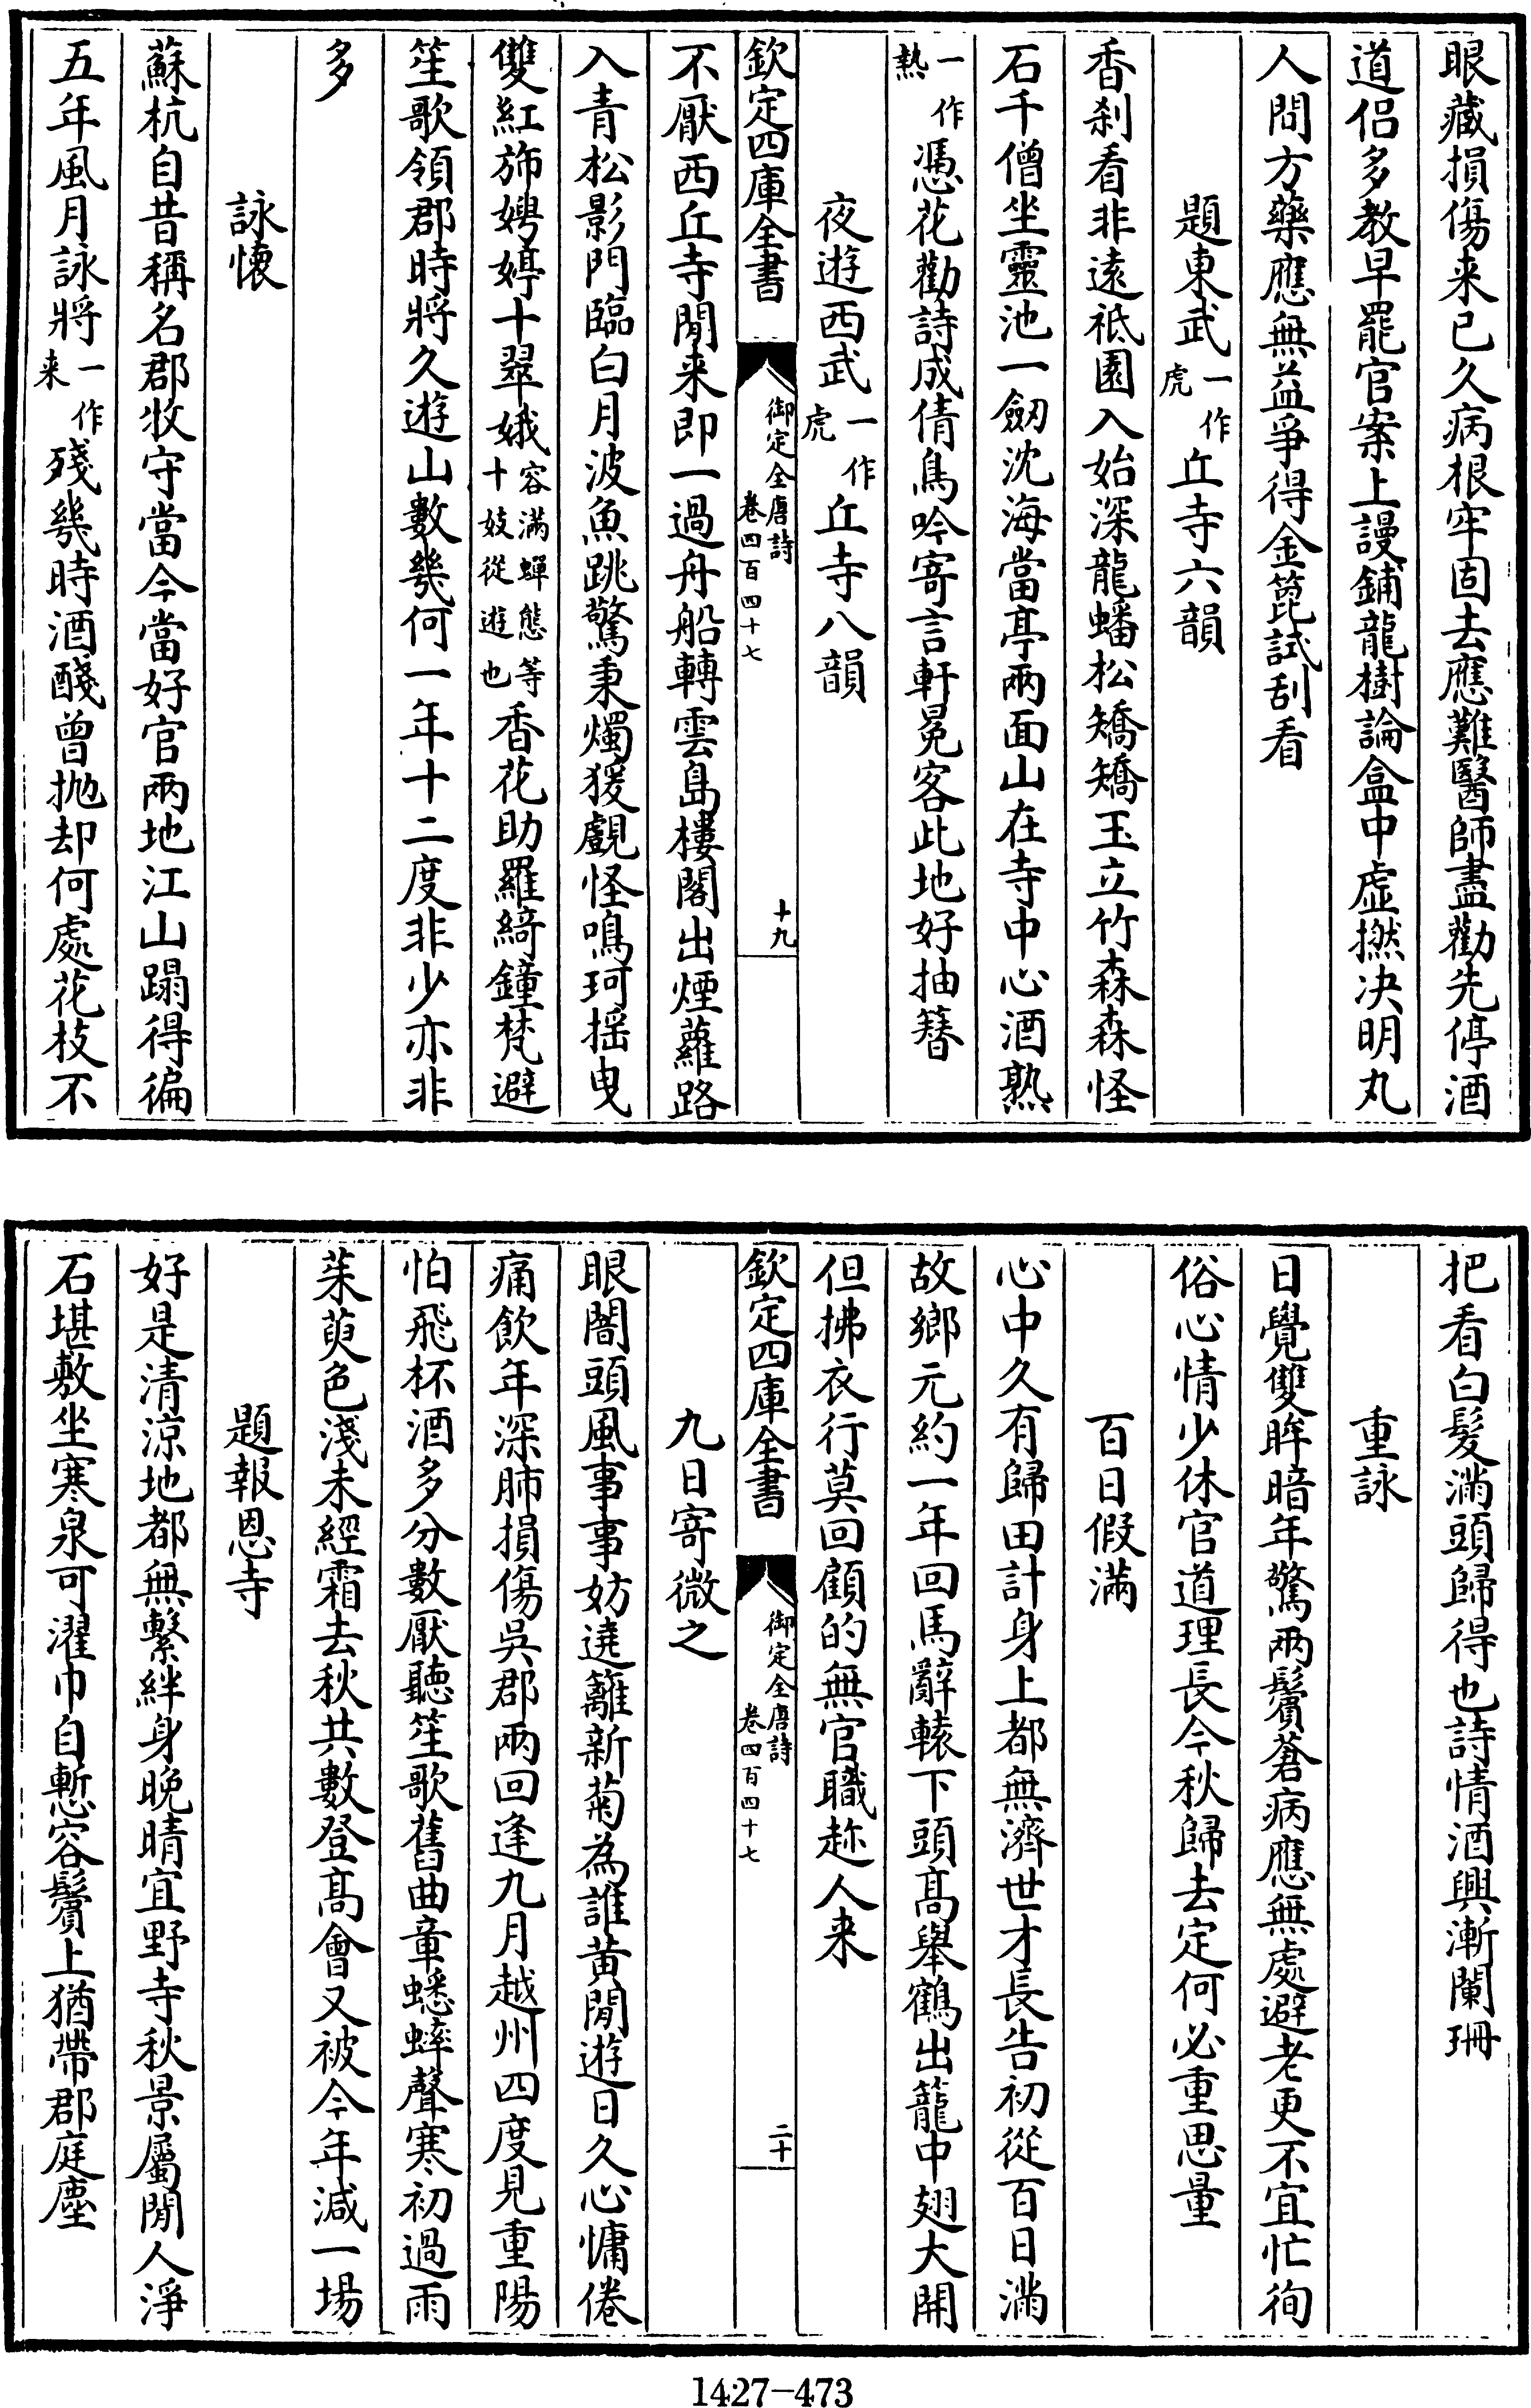 眼藏損傷来已久病根牢固去應難醫師盡勸先停酒
道侣多教早罷官案上謾鋪龍樹論盒中虛撚决明丸
人間方藥應無益爭得金篦試刮看
題東武一作虎丘寺六韻
香刹看非遠祇園入始深龍蟠松矯矯玉立竹森森怪
石千僧坐靈池一劒沈海當亭兩面山在寺中心酒熟
一作熱憑花勸詩成倩鳥吟寄言軒冕客此地好抽簪
夜遊西武一作虎丘寺八韻
欽定四庫全書 御定全唐詩 卷四百四十七 十九
不厭西丘寺閒来即一過舟船轉雲島樓閣出煙蘿路
入青松影門臨白月波魚跳驚秉燭猨覷怪鳴珂揺曳
雙紅斾娉婷十翠娥容滿蟬態等十妓從遊也香花助羅綺鐘梵避
笙歌領郡時將久遊山數幾何一年十二度非少亦非
多
詠懐
蘇杭自昔稱名郡牧守當今當好官兩地江山蹋得徧
五年風月詠將一作来殘幾時酒醆曾抛却何處花枝不
把看白髮滿頭歸得也詩情酒興漸闌珊
重詠
日覺雙眸暗年驚兩鬢蒼病應無處避老更不宜忙徇
俗心情少休官道理長今秋歸去定何必重思量
百日假滿
心中久有歸田計身上都無濟世才長告初從百日滿
故鄉元約一年回馬辭轅下頭髙舉鶴出籠中翅大開
但拂衣行莫回顧的無官職趂人来
欽定四庫全書 御定全唐詩 卷四百四十七 二十
九日寄微之
眼闇頭風事事妨遶籬新菊為誰黄閒遊日久心慵倦
痛飲年深肺損傷吳郡兩回逢九月越州四度見重陽
怕飛杯酒多分數厭聽笙歌舊曲章蟋蟀聲寒初過雨
茱萸色淺未經霜去秋共數登髙會又被今年減一場
題報恩寺
好是清涼地都無繫絆身晩晴宜野寺秋景屬閒人淨
石堪敷坐寒泉可濯巾自慙容鬢上猶帶郡庭塵
1427-473